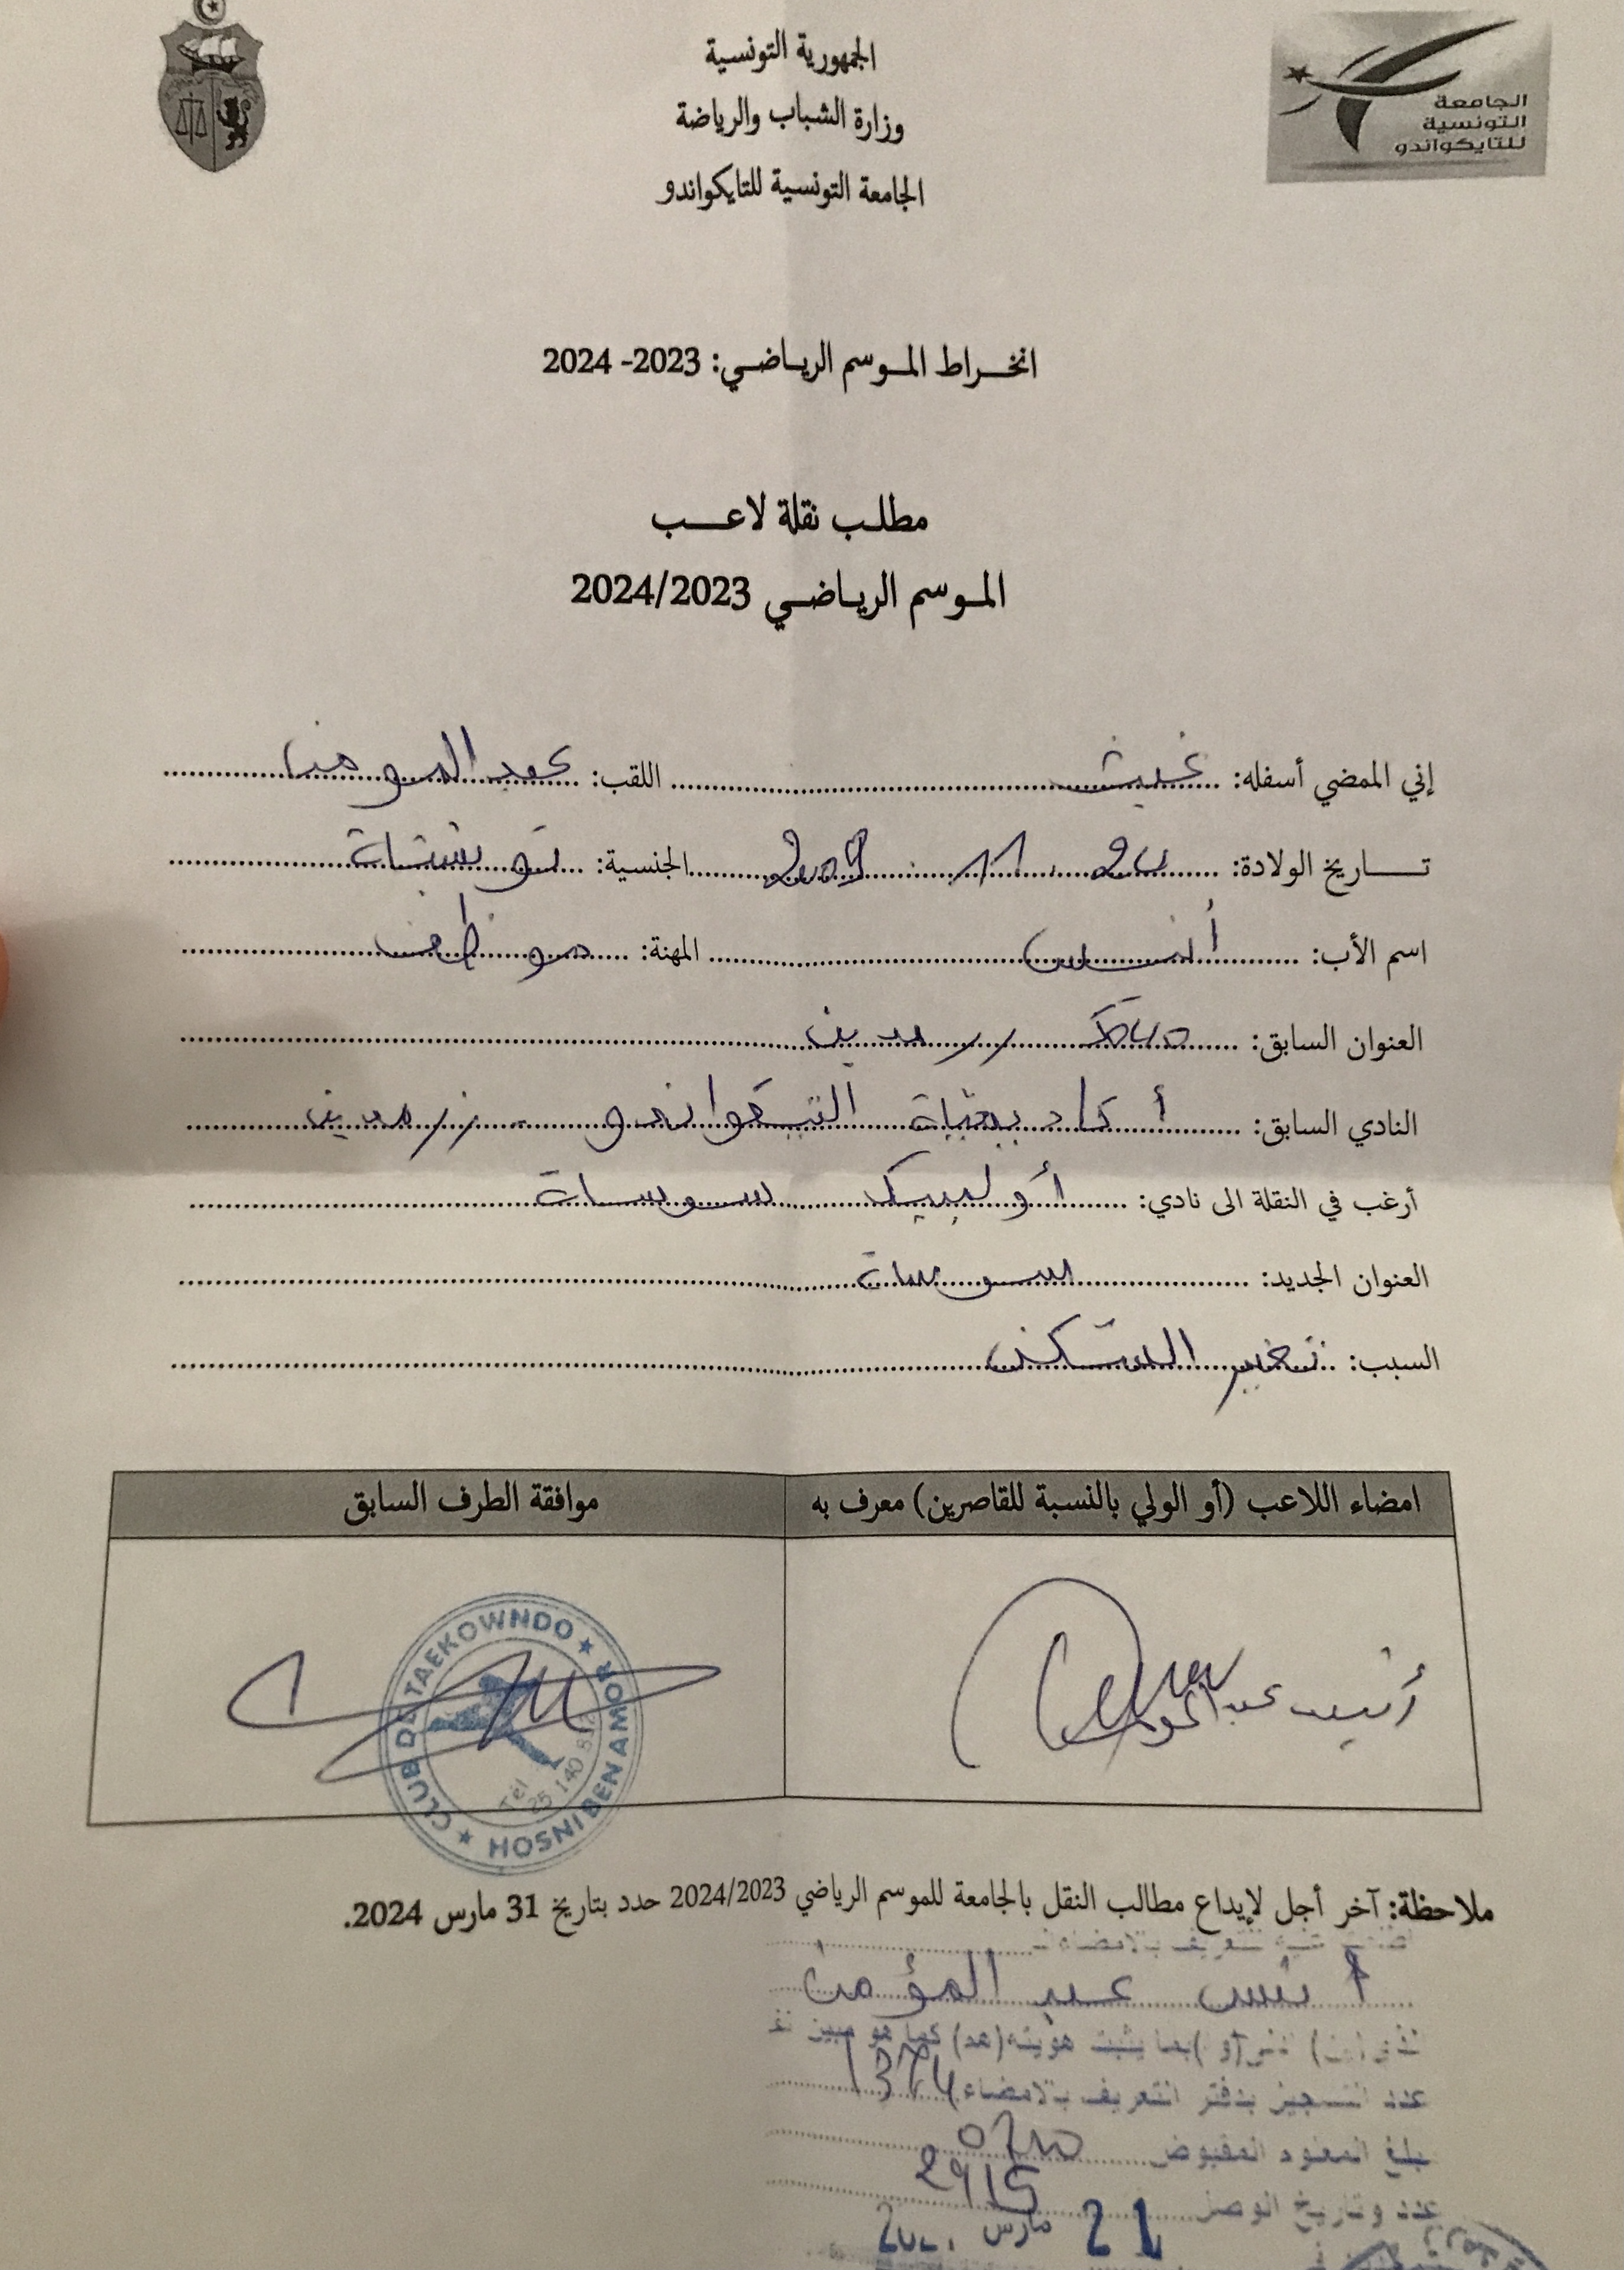 الجمهورية التونسية
وزارة الشباب والرياضة
الجامعة التونسية للتايكواندو
الجامعة
التونسية
للتايكواندو
انخراط الموسم الرياضي: 2023- 2024
مطلب نقلة لاعب
الموسم الرياضي 2024/2023
إني الممضي أسفله: غيث اللقب: عبد المومن
تاريخ الولادة: 11 2009 الجنسية: تونسية
اسم الأب: أنس المهنة: موظف
العنوان السابق: زرمدين
النادي السابق: أكاديمية التيكواندو زرمدين
أرغب في النقلة الى نادي: أولمبيك سوسة
العنوان الجديد: سوسة
السبب: تغيير السكن
امضاء اللاعب (أو الولي بالنسبة للقاصرين) معرف به
موافقة الطرف السابق
أنيس عبد المومن
CLUB DE TAEKOWNDO ★ HOSNI BEN AMOR ★
Tél
25 140
ملاحظة: آخر أجل لإيداع مطالب النقل بالجامعة للموسم الرياضي 2024/2023 حدد بتاريخ 31 مارس 2024.
التعريف بالامضاء
أنس عبد المؤمن
بما يثبت هويته (ها) كما هو مبين
عدد التسجيل بدفتر التعريف بالامضاء 1374
مبلغ المعلوم المقبوض
عدد وتاريخ الوصل 2915
21 مارس